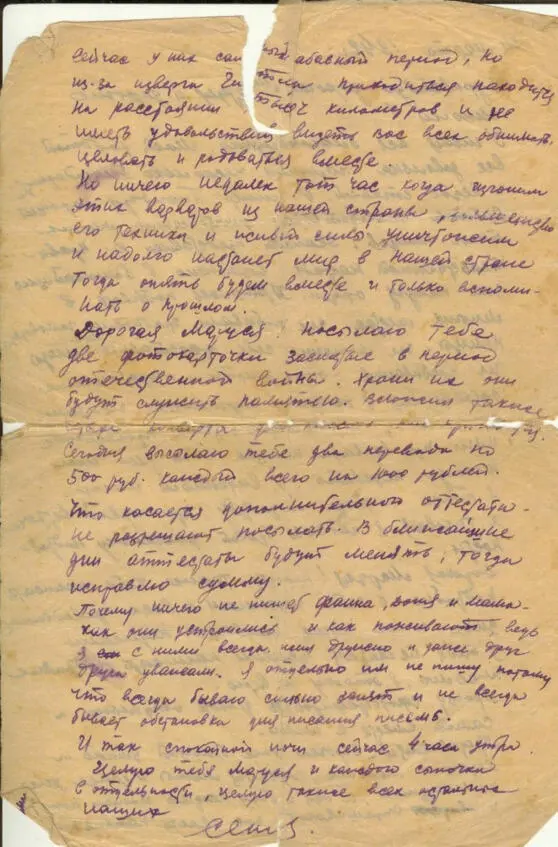 Сейчас у нас сам ный абасный период, но
из-за изверга приходиться находится
на расстоянии тысяч километров и не
иметь удовольствия видеть вас всех обнимать,
целовать и родоваться вместе.
Но ничего недалек тот час когда изгоним
этих варваров из нашей страны,
его технику и живые силы уничтожим
и надолго настанет мир в нашей стране
Тогда опять будем вместе и только вспоми-
нать о прошлом.
Дорогая Маруся посылаю тебе
две фотокарточки заснятые в период
отечественной войны. Храни их они
будут служить памятью. Вложил также
конверта
Сегодня высылаю тебе два перевода по
500 руб. каждый всего на 1000 рублей.
Что касается дополнительного аттестата-
не разрешают посылать. В ближайшие
дни аттестаты будут менять, тогда
исправлю сумму.
Почему ничего не пишет Фаина, и мама-
как они устроились и как поживают, ведь
я с ними всегда жил дружно и даже друг
друга уважали. Я отдельно им не пишу, потому
что всегда бываю сильно занят и не всегда
бывает обстановка для писания письмь.
И так спокойной ночи сейчас 4 часа утра
Целую тебя Маруся и каждого сыночка
в отдельности, целую также всех остальных
наших